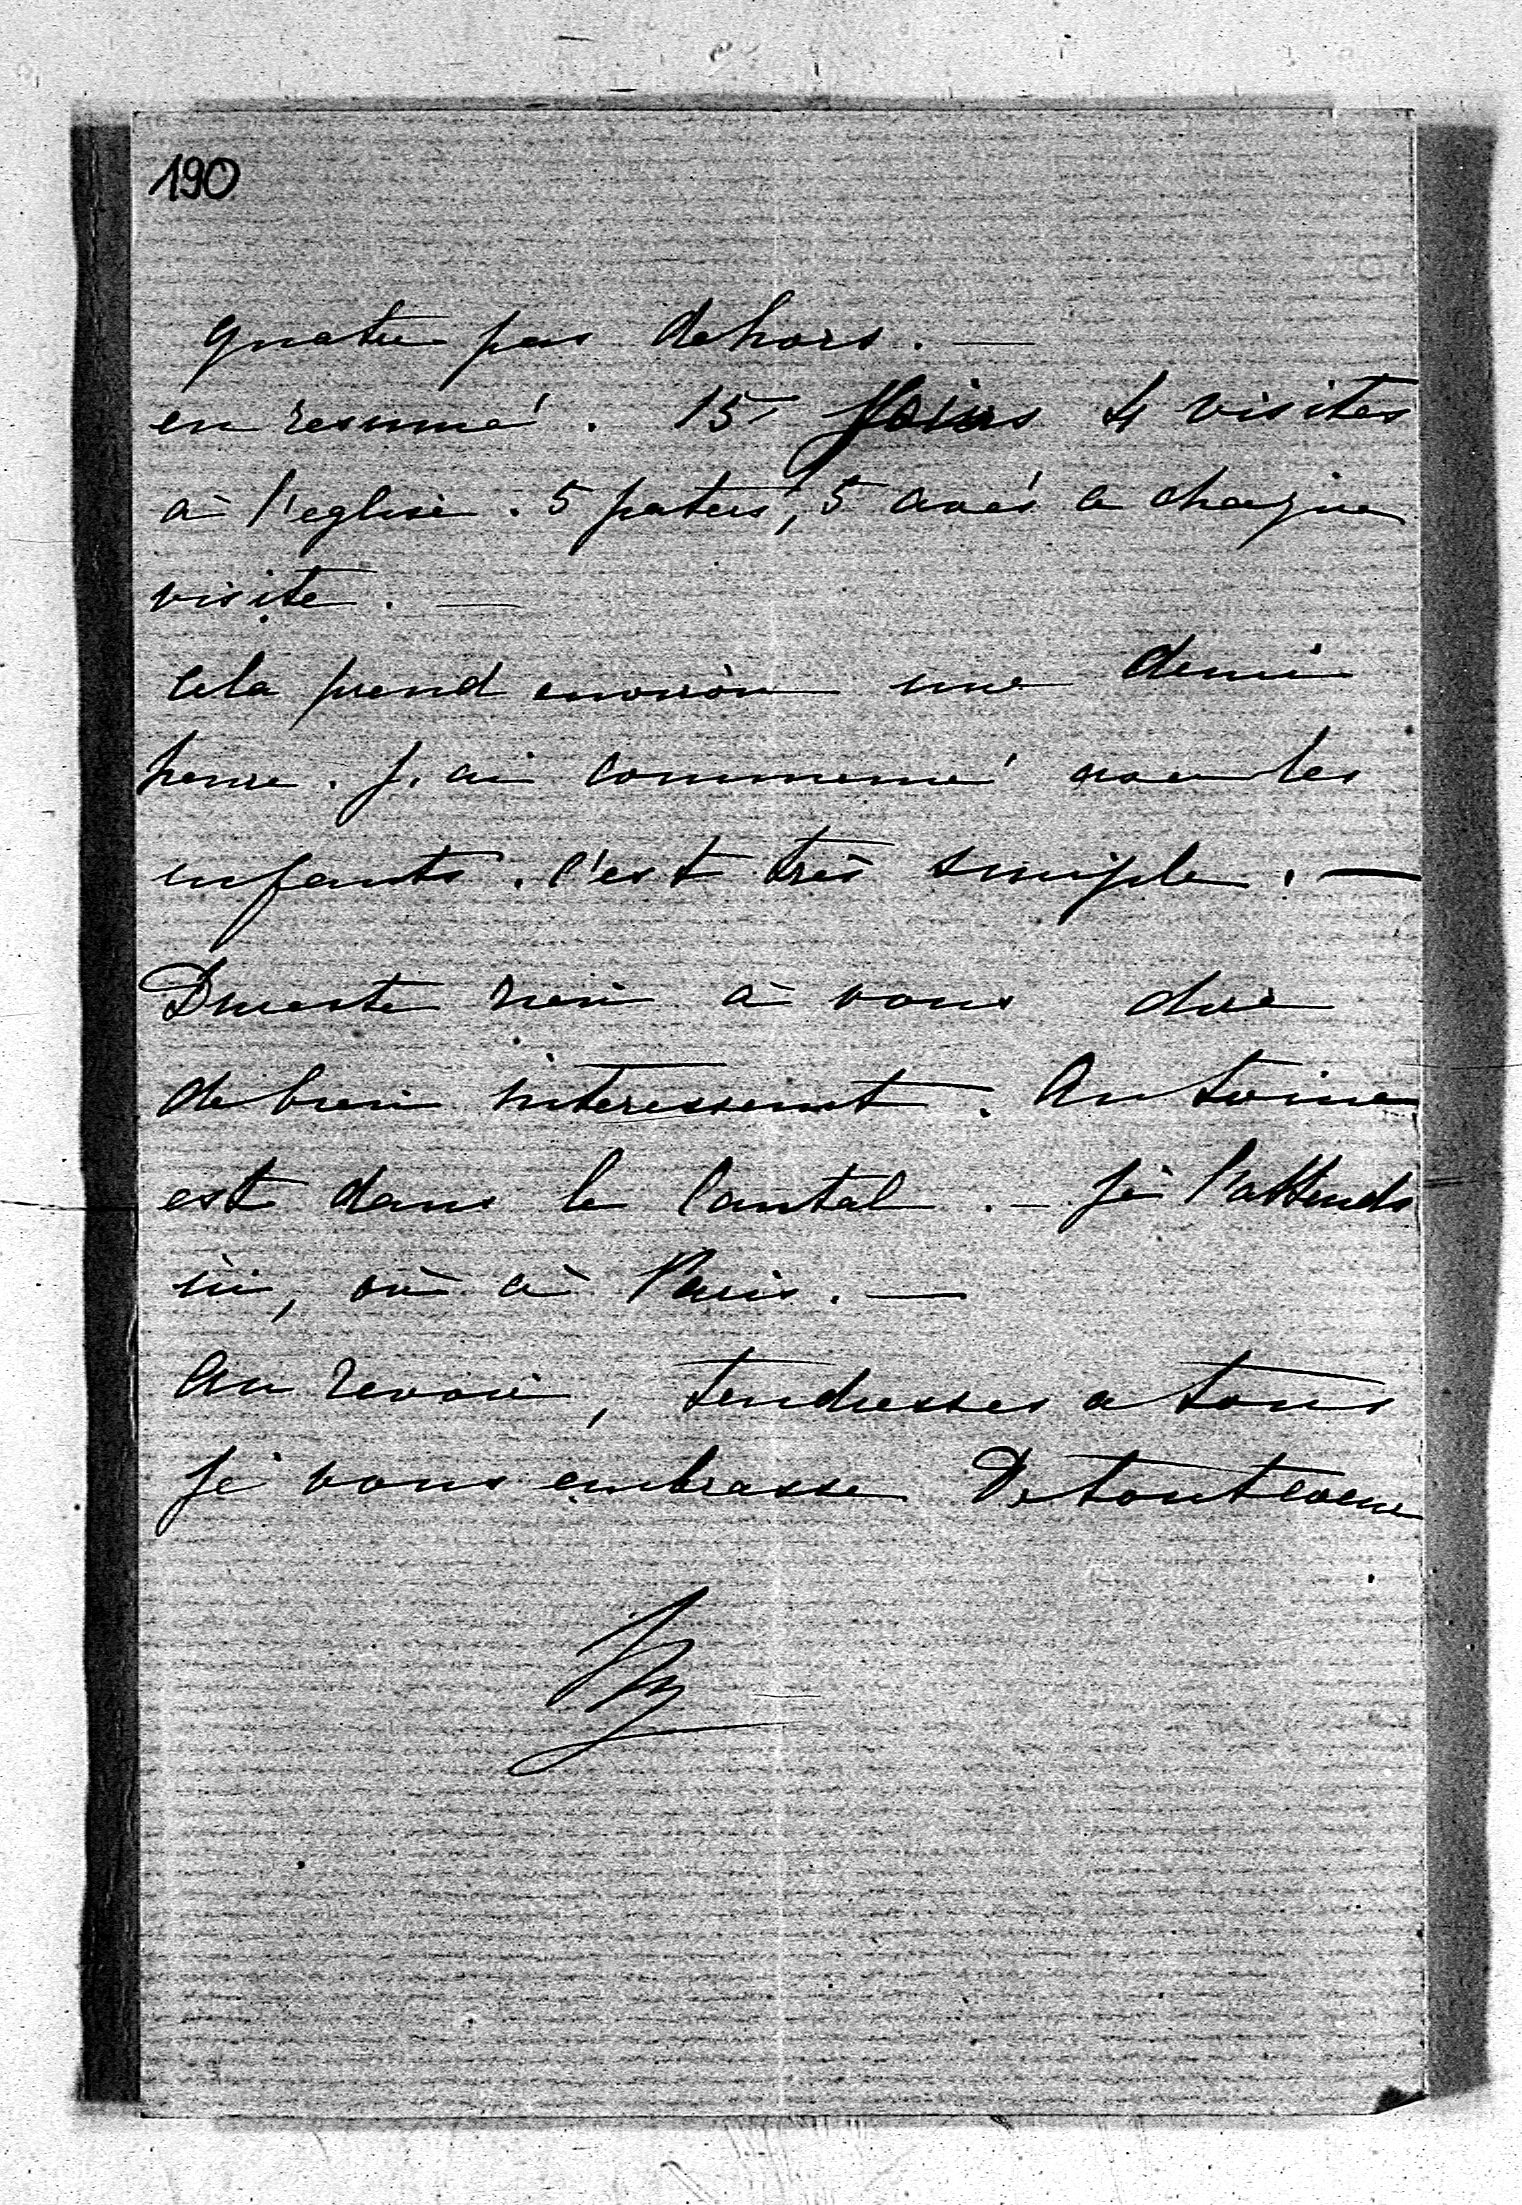 190
quatre pas dehors. —
en resumé. 15 jours 4 visites
à l'eglise. 5 paters, 5 avés a chaque
visite. —
Cela prend environ une demi
heure. J'ai commencé avec les
enfants. C'est très simple. —
Du reste rien à vous dire
de bien interessant. Antoine
est dans le Cantal. — Je l'attends
ici, où à Paris. —
Au revoir, tendresses a tous
Je vous embrasse De tout coeur